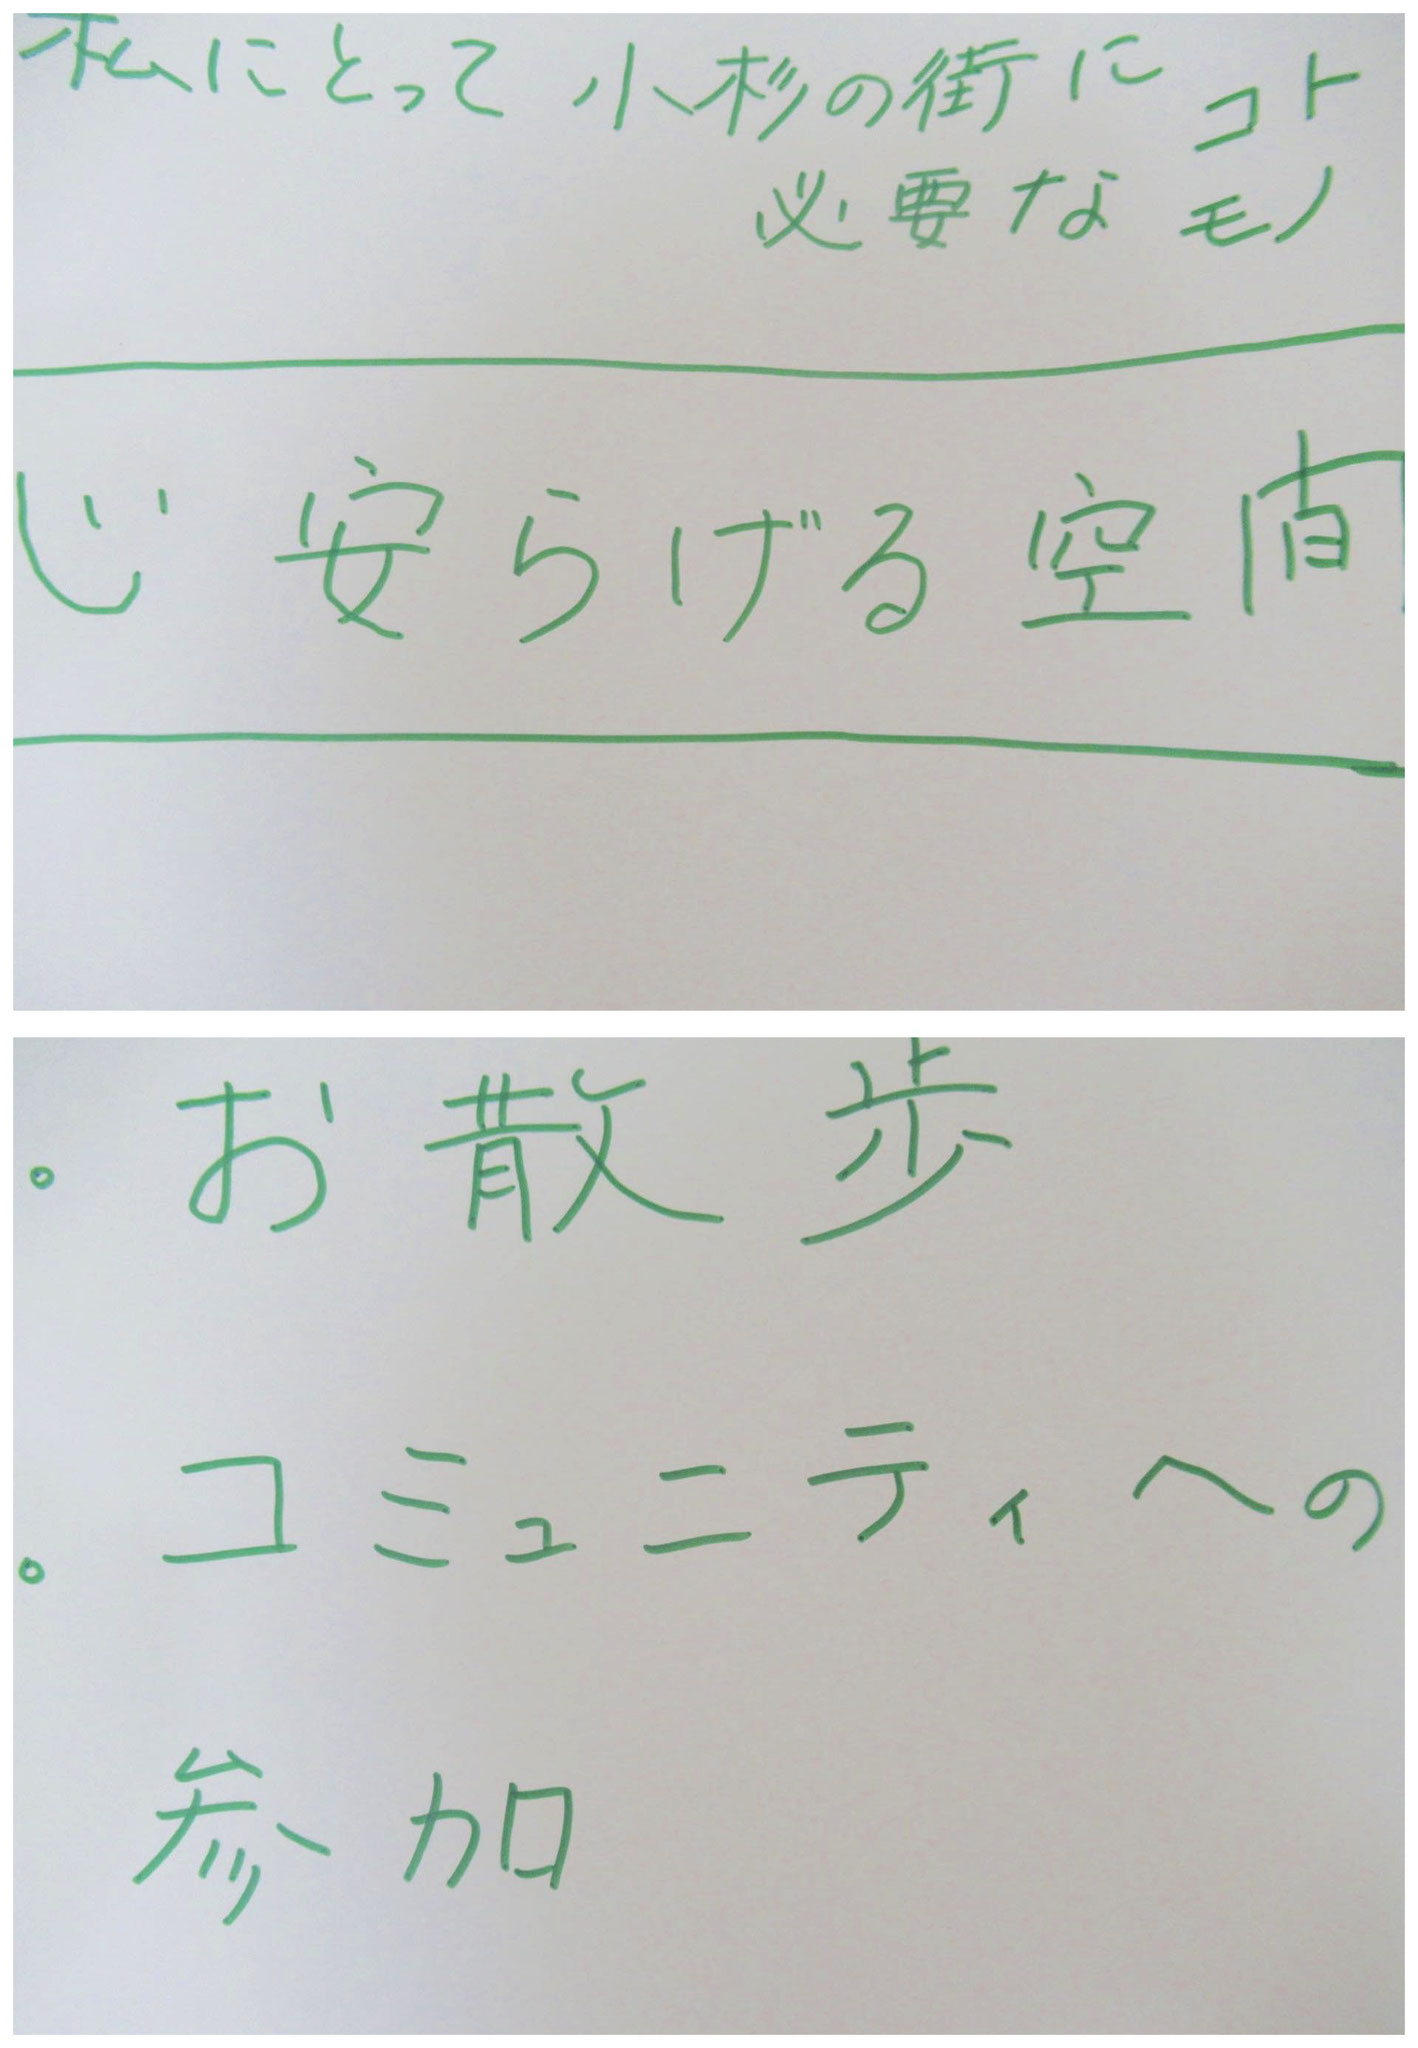 私にとって 小杉の街に コト
必要な モノ
心 安らげる空間
。お散歩
。コミュニティへの
参加